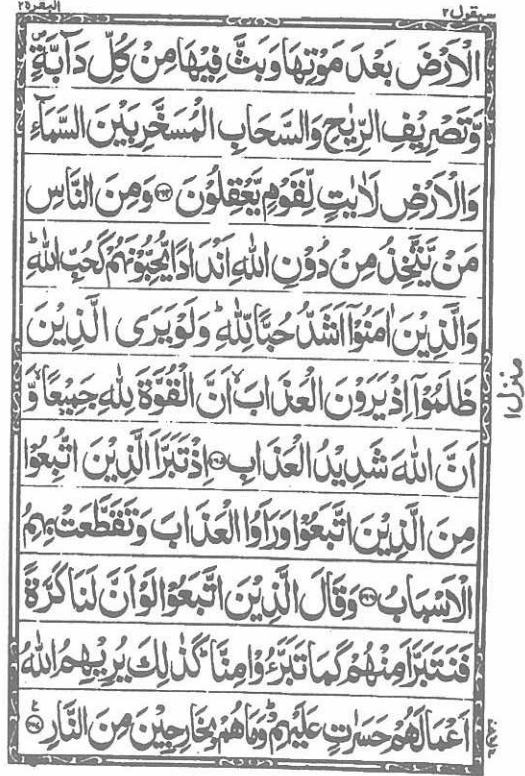 سيقول ٢
البقرة ٢
الْاَرْضَ بَعْدَ مَوْتِهَا وَبَثَّ فِيْهَا مِنْ كُلِّ دَآبَّةٍ
وَّتَصْرِيْفِ الرِّيٰحِ وَالسَّحَابِ الْمُسَخَّرِ بَيْنَ السَّمَآءِ
وَالْاَرْضِ لَاٰيٰتٍ لِّقَوْمٍ يَّعْقِلُوْنَ ﴿۱۶۴﴾ وَمِنَ النَّاسِ
مَنْ يَّتَّخِذُ مِنْ دُوْنِ اللّٰهِ اَنْدَادًا يُّحِبُّوْنَهُمْ كَحُبِّ اللّٰهِ ؕ
وَالَّذِيْنَ اٰمَنُوْٓا اَشَدُّ حُبًّا لِّلّٰهِ ؕ وَلَوْ يَرَى الَّذِيْنَ
ظَلَمُوْٓا اِذْ يَرَوْنَ الْعَذَابَ ۙ اَنَّ الْقُوَّةَ لِلّٰهِ جَمِيْعًا ۙ وَّ
اَنَّ اللّٰهَ شَدِيْدُ الْعَذَابِ ﴿۱۶۵﴾ اِذْ تَبَرَّاَ الَّذِيْنَ اتُّبِعُوْا
مِنَ الَّذِيْنَ اتَّبَعُوْا وَرَاَوُا الْعَذَابَ وَتَقَطَّعَتْ بِهِمُ
الْاَسْبَابُ ﴿۱۶۶﴾ وَقَالَ الَّذِيْنَ اتَّبَعُوْا لَوْ اَنَّ لَنَا كَرَّةً
فَنَتَبَرَّاَ مِنْهُمْ كَمَا تَبَرَّءُوْا مِنَّا ؕ كَذٰلِكَ يُرِيْهِمُ اللّٰهُ
اَعْمَالَهُمْ حَسَرٰتٍ عَلَيْهِمْ ؕ وَمَا هُمْ بِخٰرِجِيْنَ مِنَ النَّارِ ﴿۱۶۷﴾
منزل ١